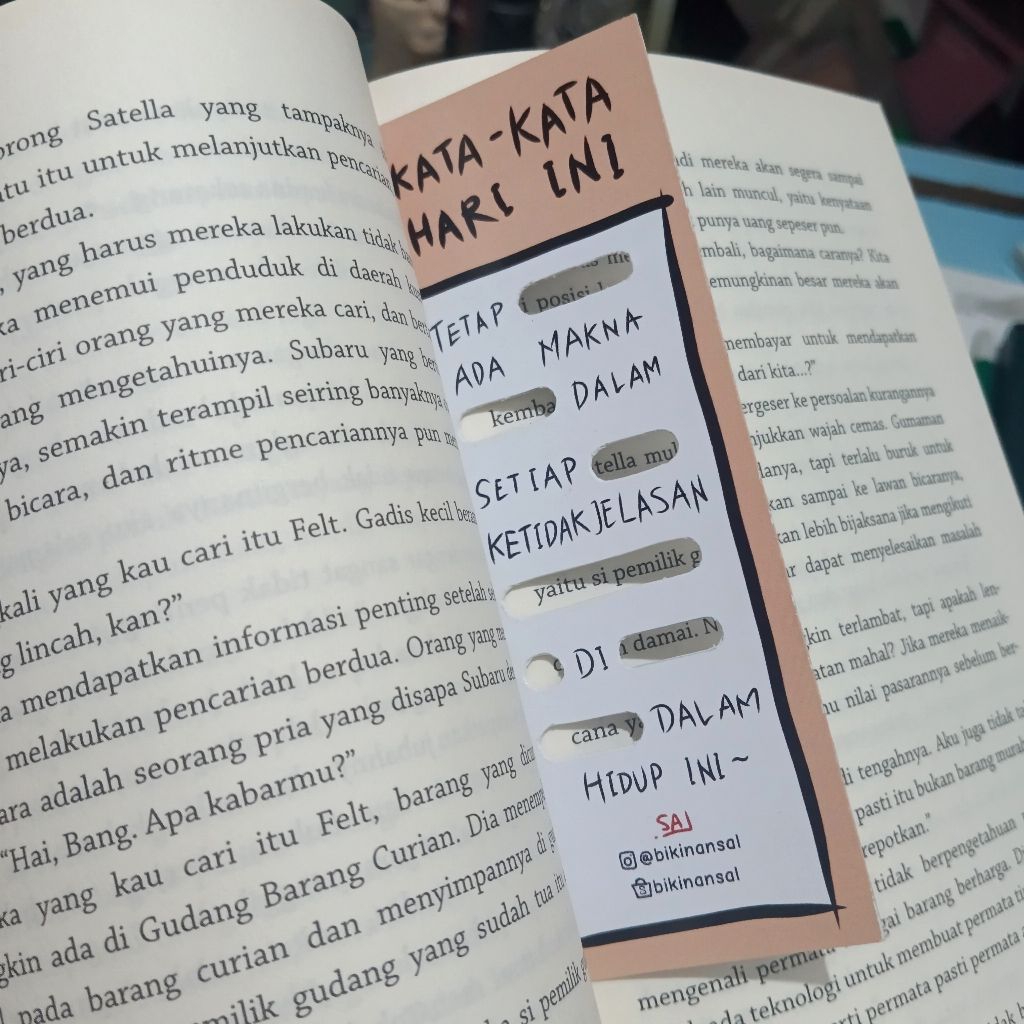 orong Satella yang tampaknya
itu itu untuk melanjutkan pencarian
berdua.
, yang harus mereka lakukan tidak
ka menemui penduduk di daerah
ri-ciri orang yang mereka cari, dan
ang mengetahuinya. Subaru yang
ya, semakin terampil seiring banyaknya
bicara, dan ritme pencariannya pun
kali yang kau cari itu Felt. Gadis kecil
g lincah, kan?”
a mendapatkan informasi penting setelah
melakukan pencarian berdua. Orang yang
ara adalah seorang pria yang disapa Subaru
“Hai, Bang. Apa kabarmu?”
ka yang kau cari itu Felt, barang yang
gkin ada di Gudang Barang Curian. Dia
pada barang curian dan menyimpannya di
milik gudang yang sudah tua itu
si pemilik
KATA-KATA
HARI INI
TETAP i posisi
ADA MAKNA
kemba DALAM
SETIAP tella mul
KETIDAKJELASAN
yaitu si pemilik g
DI damai. N
cana y DALAM
HIDUP INI~
SAL
@bikinansal
bikinansal
di mereka akan segera sampai
h lain muncul, yaitu kenyataan
punya uang sepeser pun.
mbali, bagaimana caranya? Kita
emungkinan besar mereka akan
membayar untuk mendapatkan
dari kita...?”
ergeser ke persoalan kurangannya
njukkan wajah cemas. Gumaman
lanya, tapi terlalu buruk untuk
kan sampai ke lawan bicaranya,
kan lebih bijaksana jika mengikuti
r dapat menyelesaikan masalah
kin terlambat, tapi apakah len-
atan mahal? Jika mereka menaik-
nu nilai pasarannya sebelum ber-
li tengahnya. Aku juga tidak
pasti itu bukan barang
repotkan.”
tidak berpengetahuan
gai barang berharga.
mengenali
ada teknologi untuk membuat permata
erti permata pasti permata